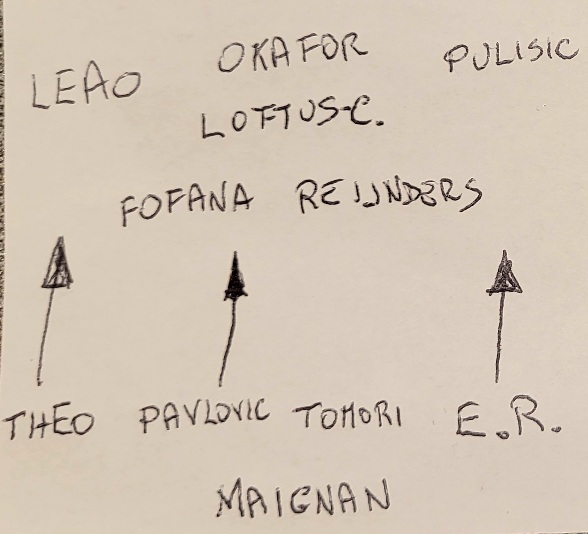 LEAO OKAFOR PULISIC
LOFTUS-C.
FOFANA REIJNDERS
THEO PAVLOVIC TOMORI E.R.
MAIGNAN